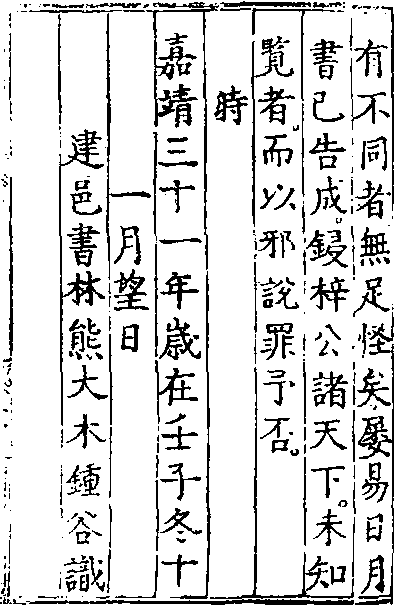 有不同者無足怪矣屡易日月
書已告成。鋟梓公諸天下。未知
覧者。而以邪說罪予否。
時
嘉靖三十一年歳在壬子冬十
一月望日
建邑書林熊大木鍾谷識